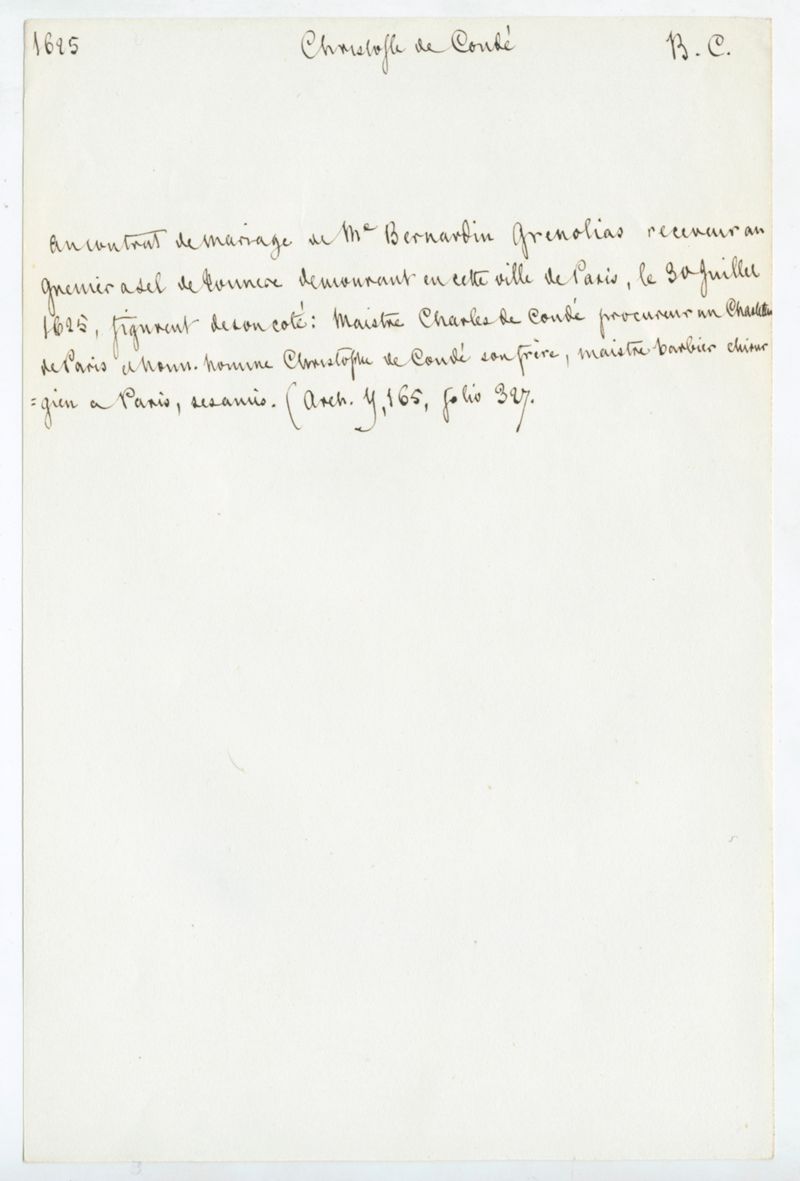 1625 Christofle de Condé B. C.
au contrat de mariage de Me Bernardin Grenolias receveur au
grenier a sel de Tonnere demourant en cette ville de Paris, le 30 Juillet
1625, figurent de son coté : Maistre Charles de Condé procureur au Chastelet
de Paris et honn. homme Christophe de Condé son frère, maistre barbier chirur
=gien a Paris, ses amis. (Arch. Y, 165, folio 327.